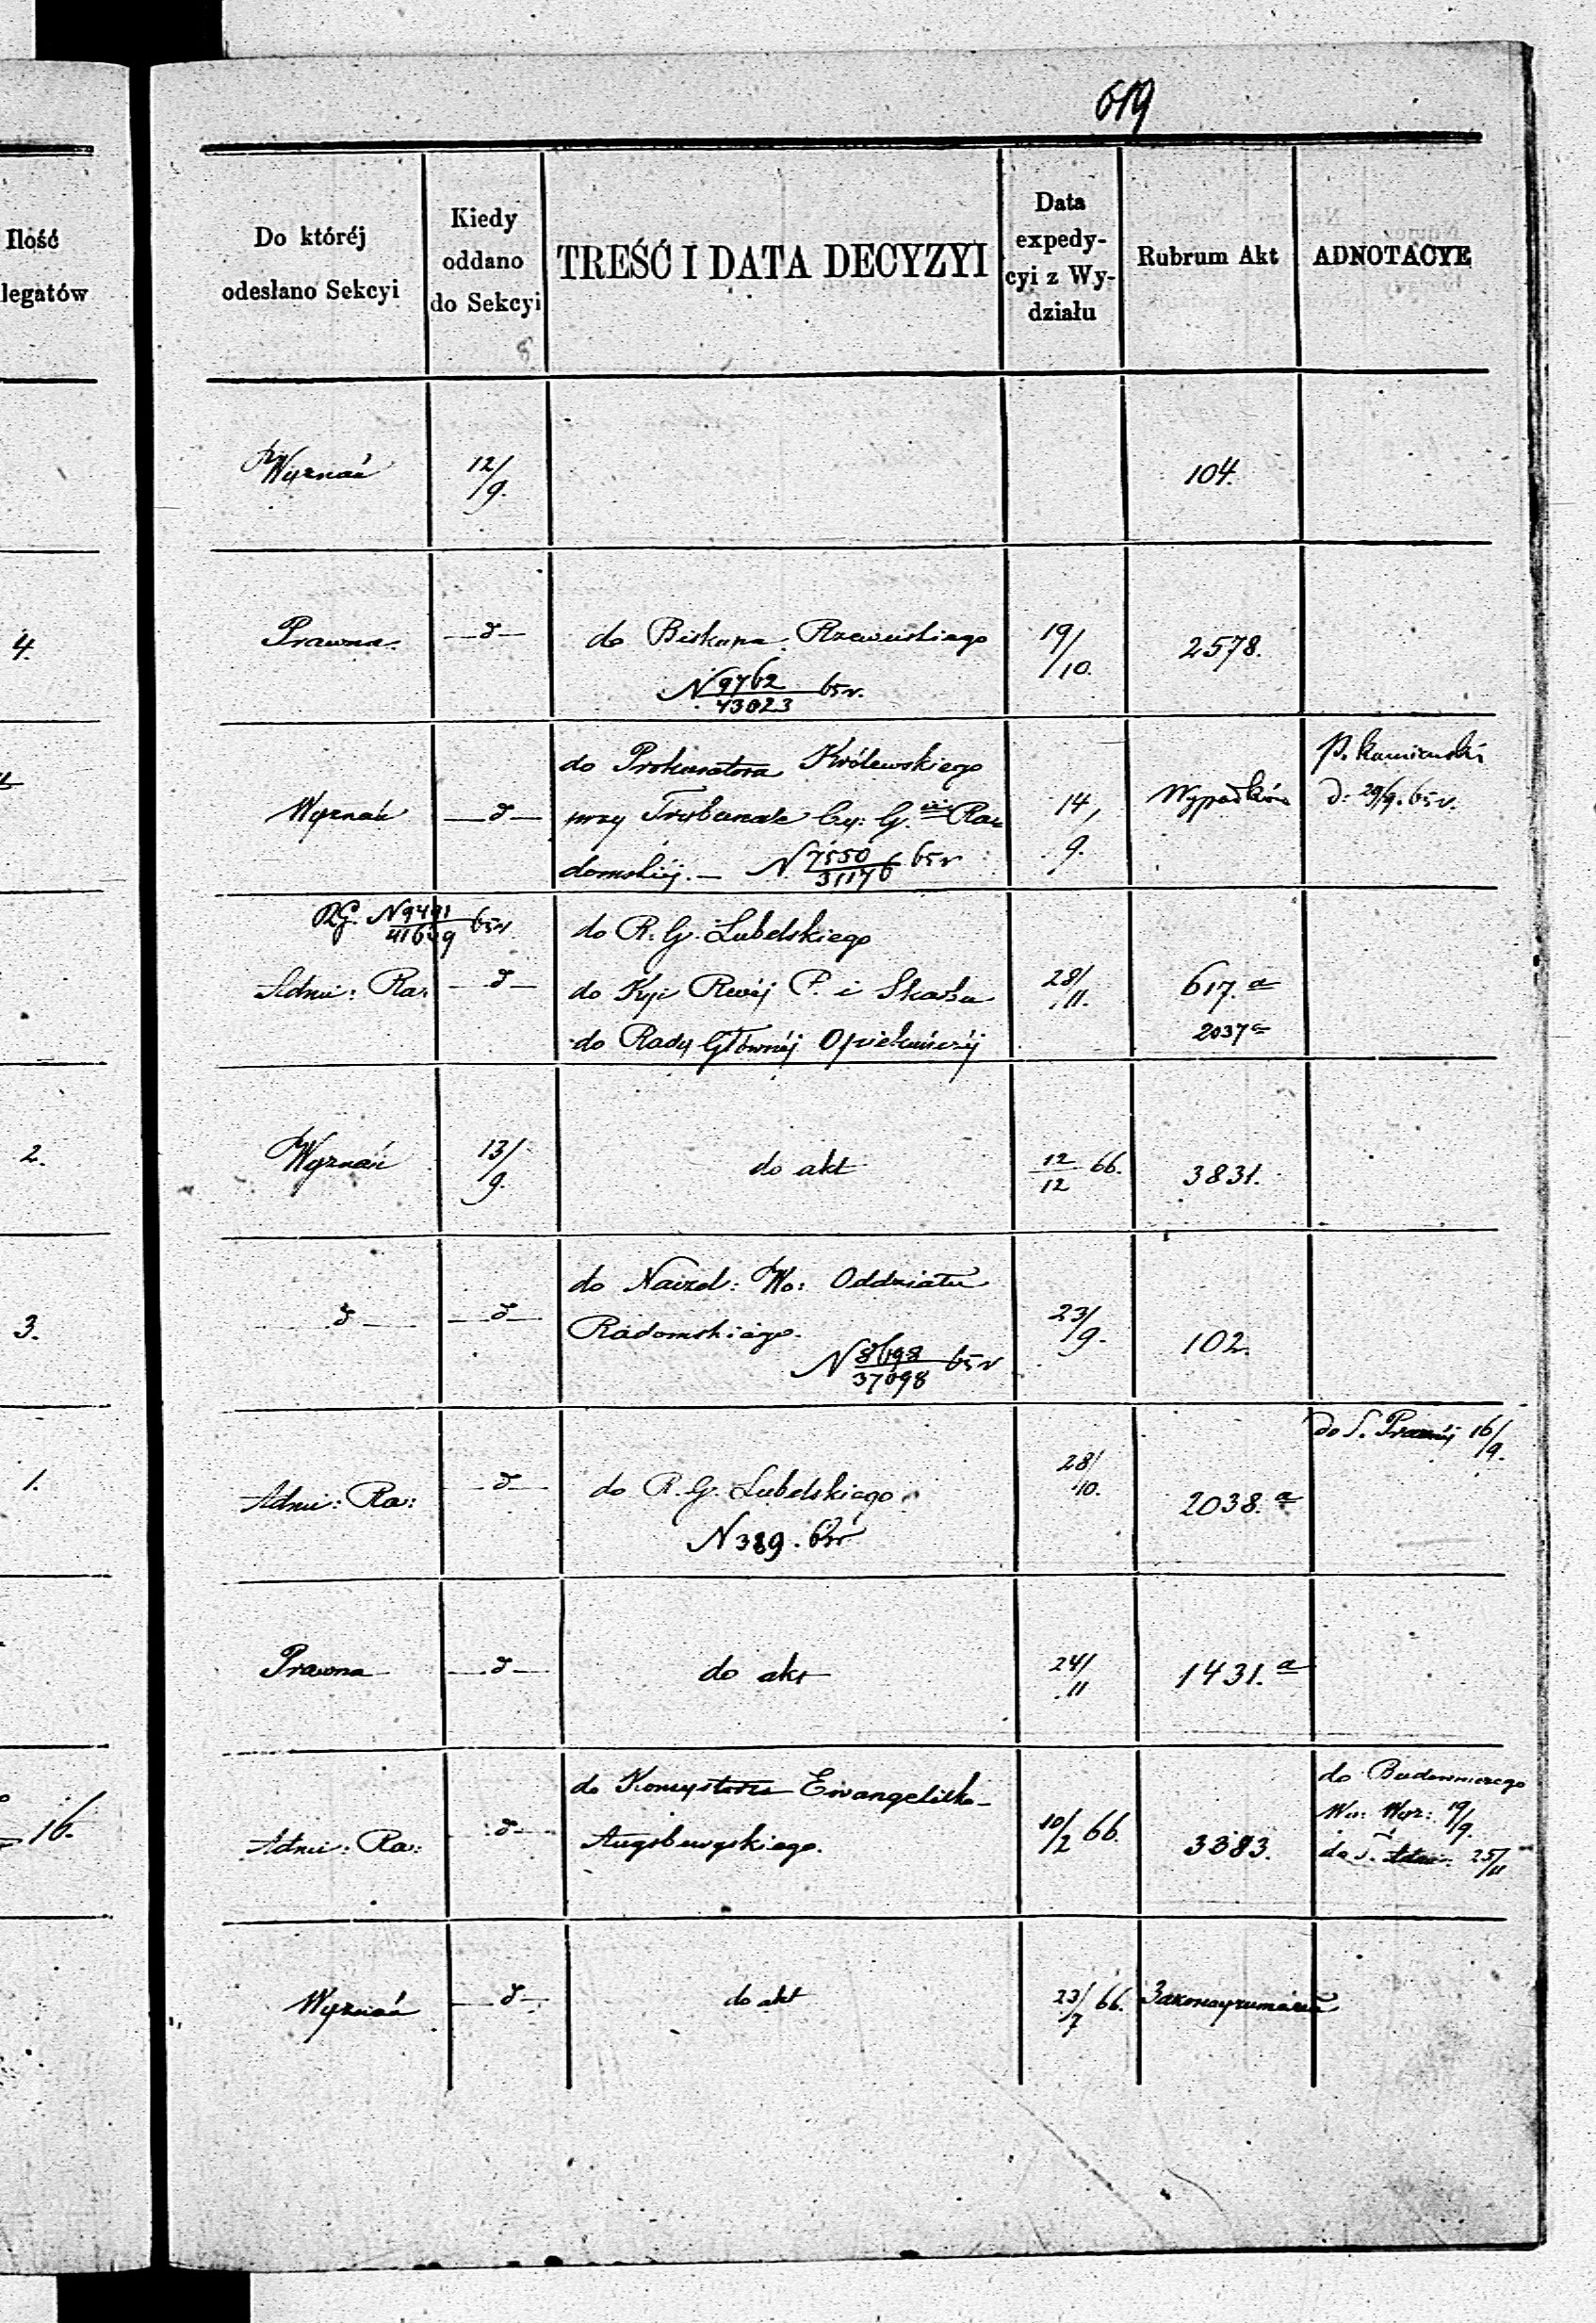 619
Ilość
legatów
Do któréj
odesłano Sekcyi
Kiedy
oddano
do Sekcyi
TREŚĆ I DATA DECYZYI
Data
expedy-
cyi z Wy-
działu
Rubrum Akt
ADNOTACYE
Wyznań
12/9.
104.
4.
Prawna.
—d—
do Biskupa Rzewuskiego
N 9762/43023 65 r.
19/10.
2578.
Wyznań
—d—
do Prokuratora Królewskiego
przy Trybunale Cy: G. Ra
domskiéj. — N 7550/31176 65 r
14/9.
Wypadków
P. Kamieński
d. 29/9. 65 r.
RG. N 9491 65 r
Admi: Ra:
—d—
do R. G. Lubelskiego
do Kyi Rwéj P. i Skarbu
do Rady Głównéj Opiekuńczéj
28/11.
617.a
2037a
2.
Wyznań
13/9.
do akt
12/12 66.
3831.
3.
—d—
—d—
do Naczel: Wo: Oddziału
Radomskiego.
N 8698/37098 65 r
23/9.
102.
1.
Admi: Ra:
—d—
do R. G. Lubelskiego
N 389.
28/10.
2038.a
do S. Prawnéj 16/9.
Prawna
—d—
do akt
24/11
1431.a
16.
Admi: Ra:
—d—
do Konsystorza Ewangelicko-
Augsburgskiego.
10/2 66.
3383.
do Budowniczego
Wo: Wyz: 19/9.
do S. Admi: 25/11
Wyznań
—d—
do akt
23/7 66.